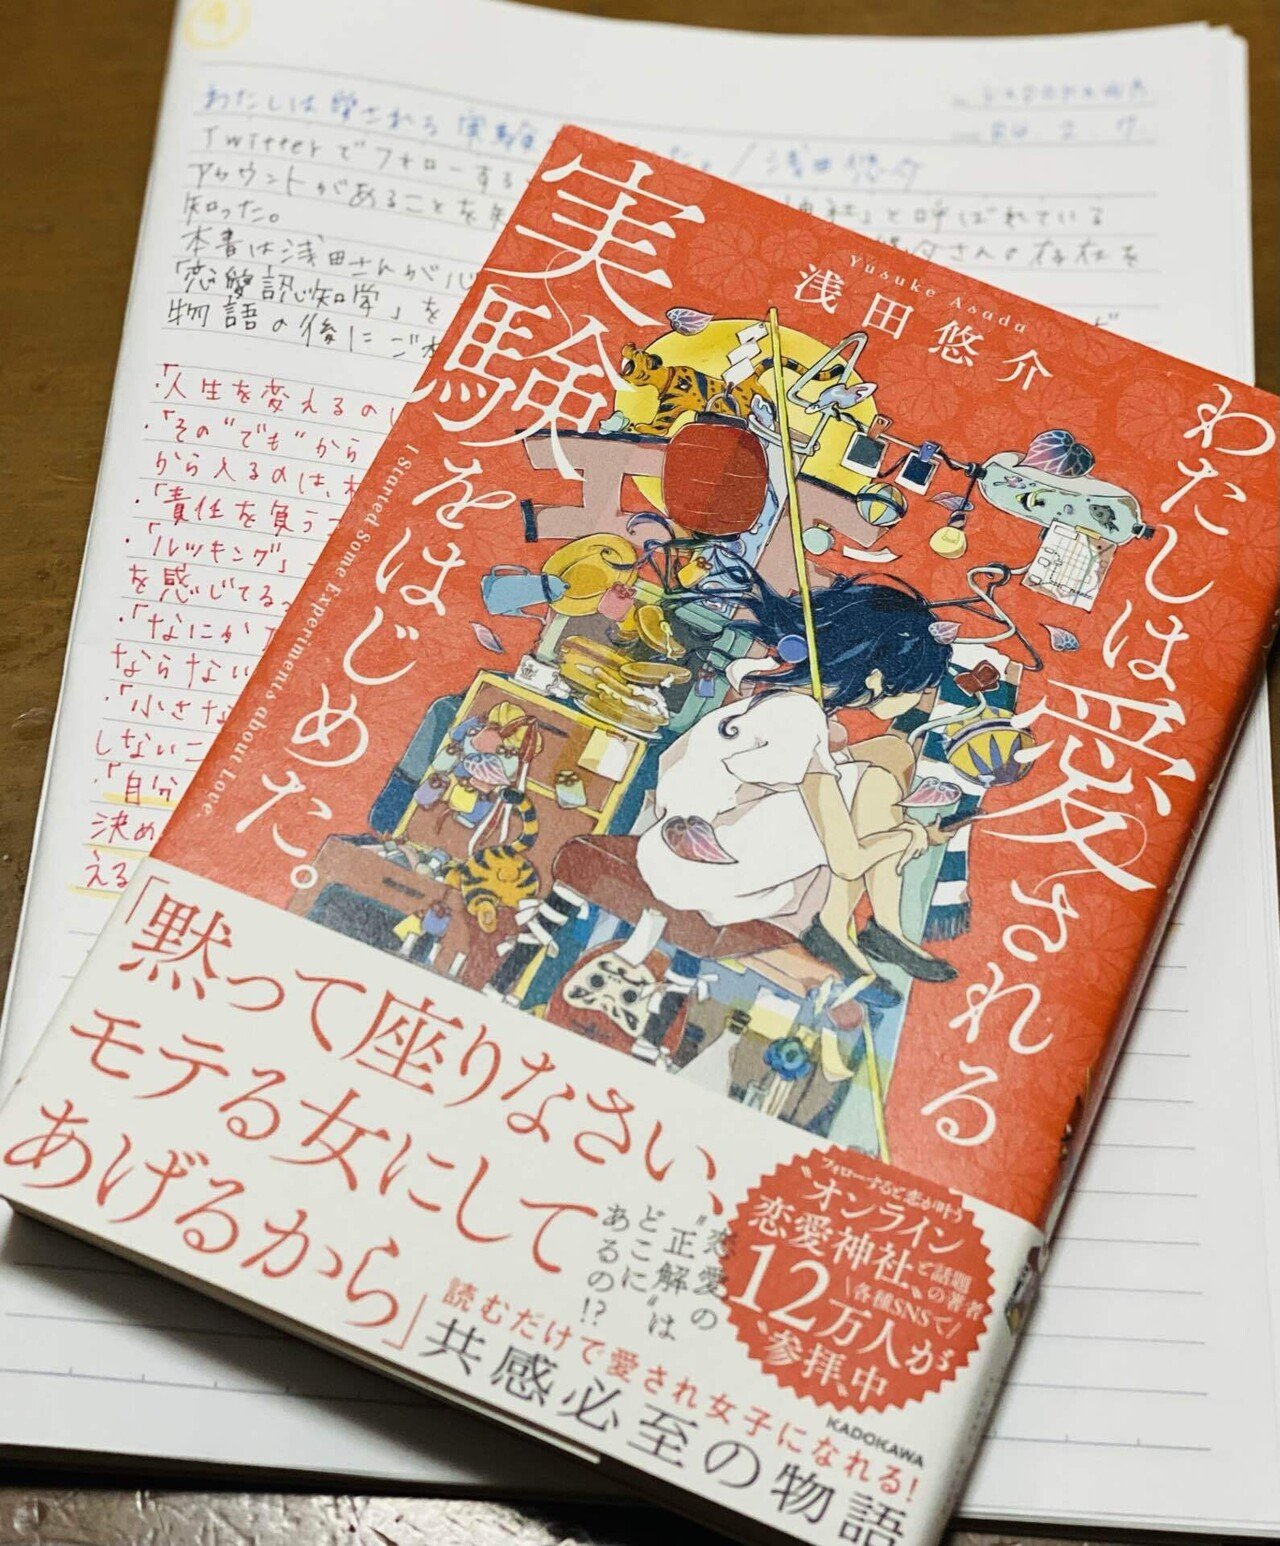 わたしは愛される
実験をはじめた。
I Started Some Experiments about Love.
Yusuke Asada
浅田悠介
「黙って座りなさい、
モテる女にして
あげるから」
"恋愛の
正解"は
どこに
あるの!?
フォローすると恋が叶う
"オンライン
恋愛神社"と話題
の著者
各種SNSで
12万人が
"参拝"中
読むだけで愛され女子になれる!
共感必至の物語
KADOKAWA
わたしは愛される実験
/浅田悠介
Twitterでフォローする
と呼ばれている
アカウントがあることを
さんの存在を
知った。
本書は浅田さんが
「恋愛認知学」を
物語の後に
・「人生を変えるの
・「その"でも"から
から入るのは、
・「責任を負う
・「ルッキング」
を感じてる
・「なにか
ならない
・「小さな
しないこ
・「自分
決め
える